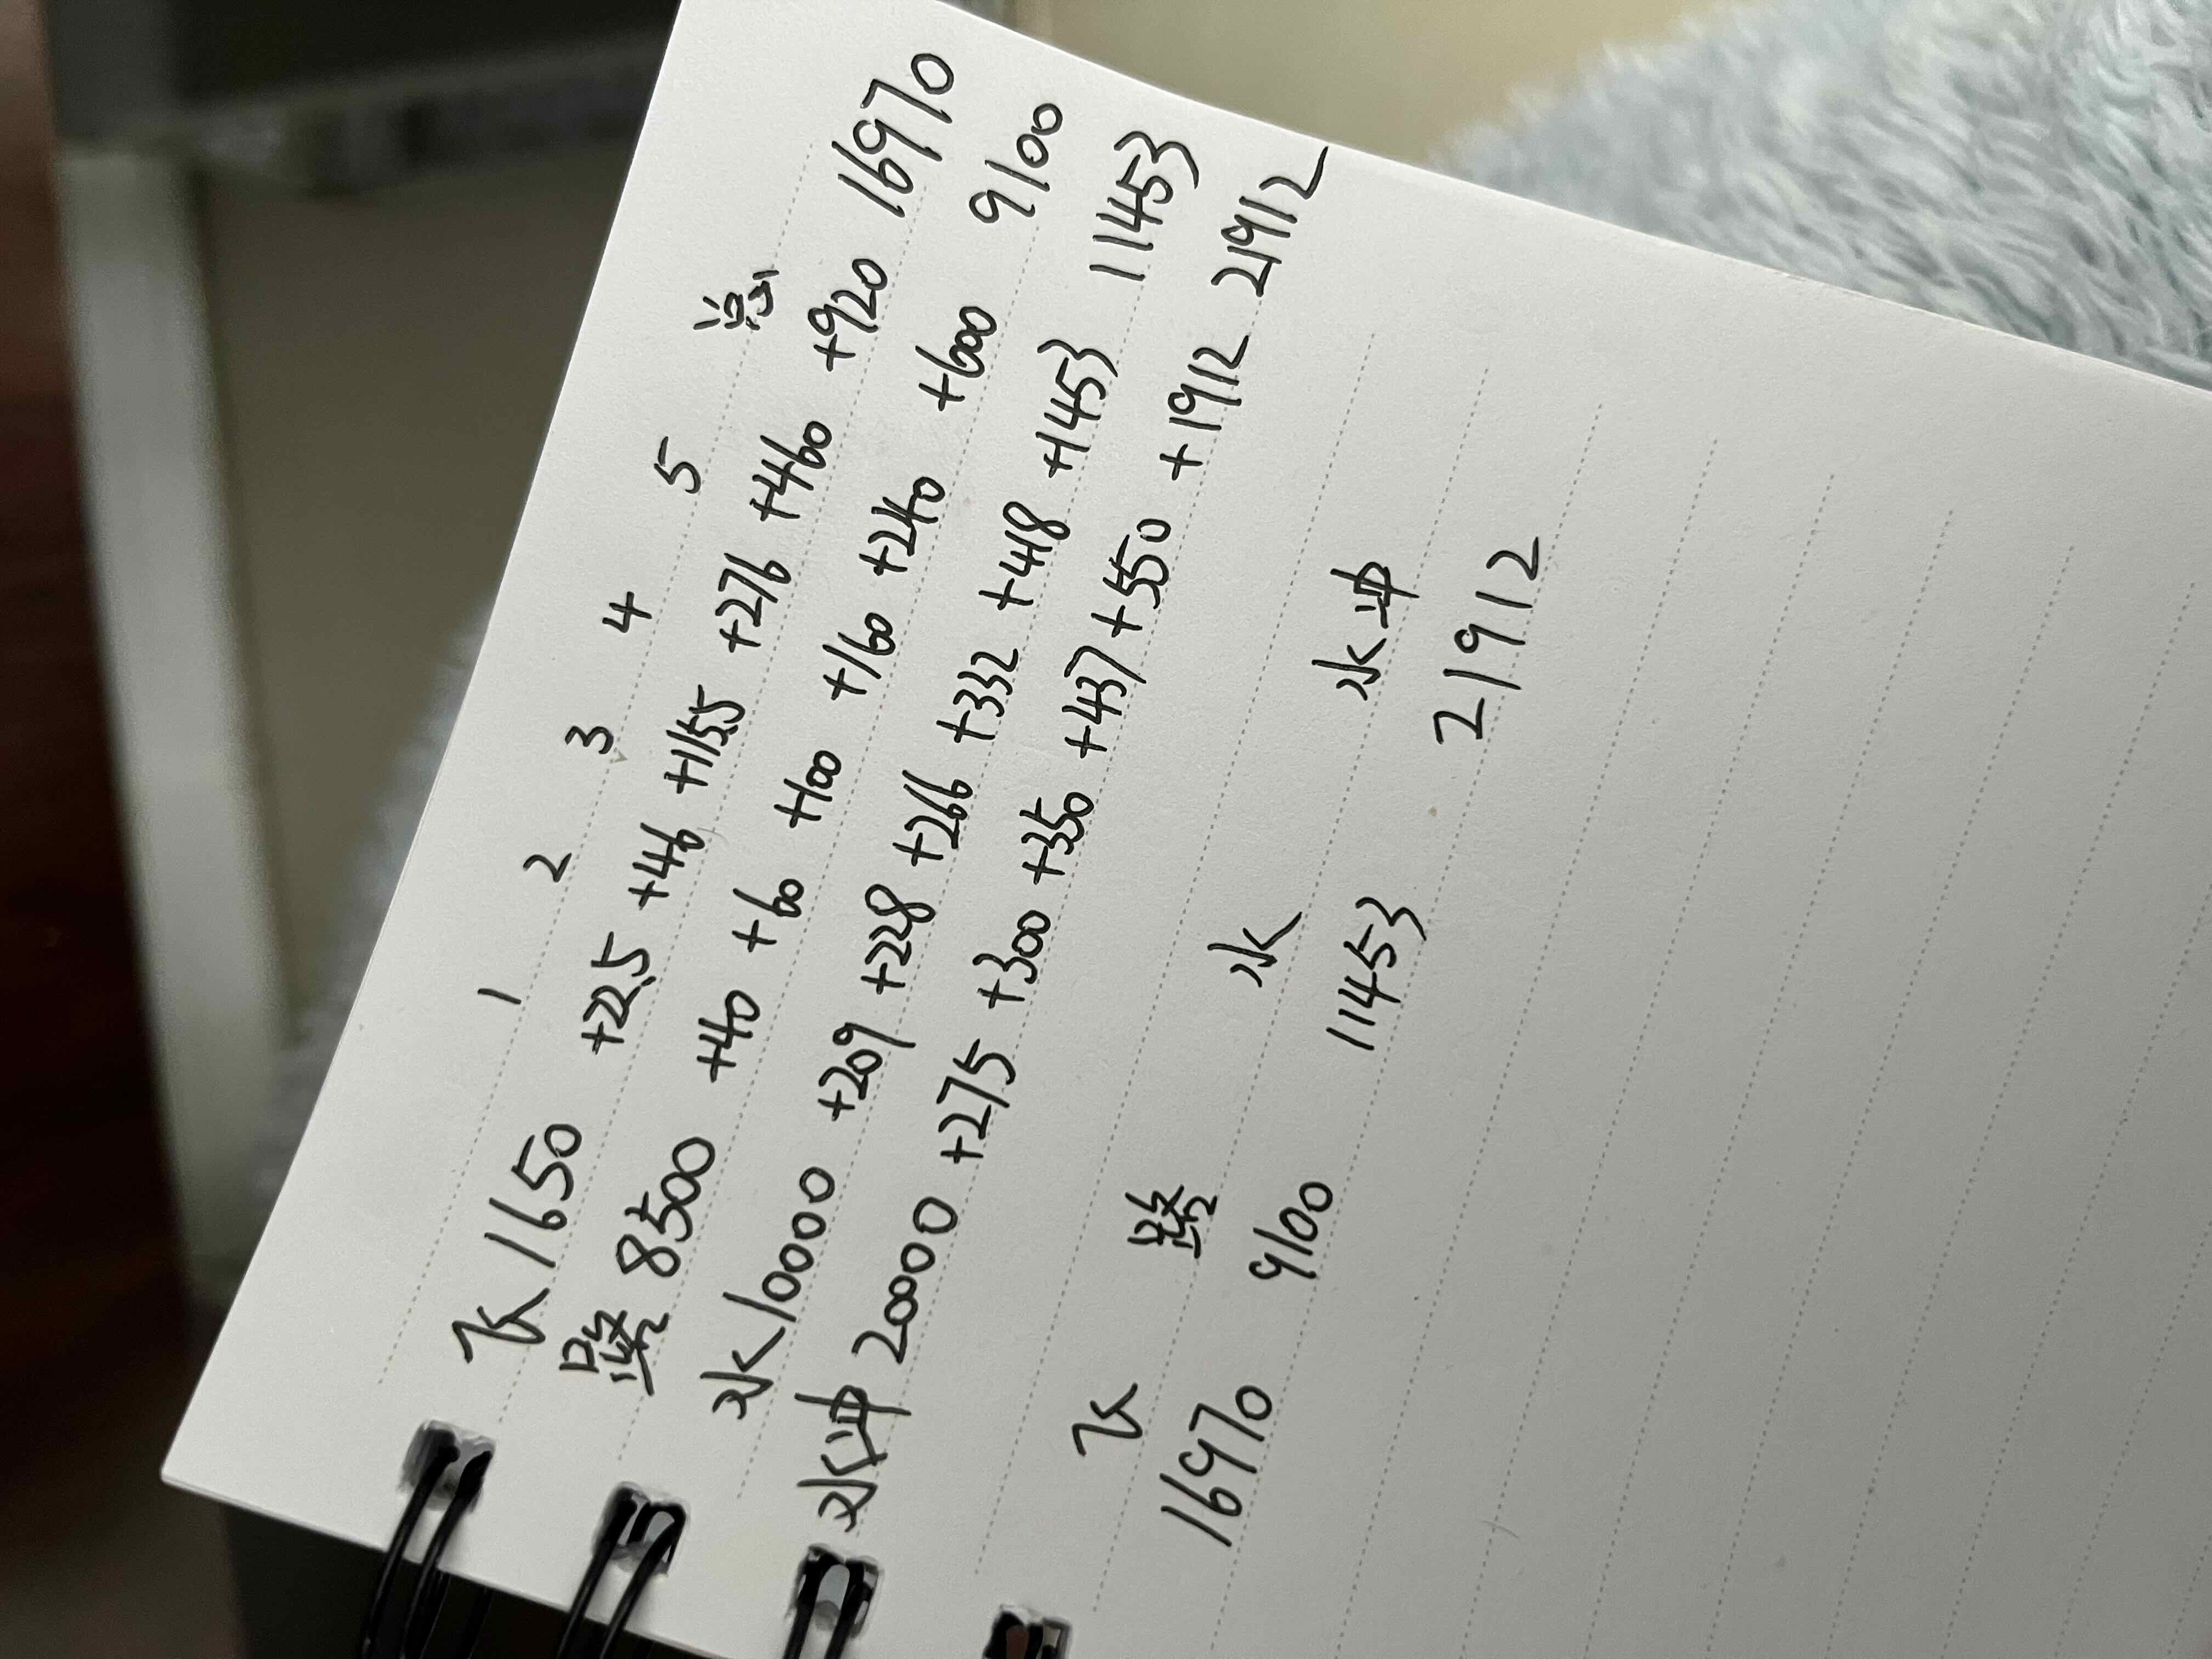 1 2 3 4 5 总
飞 1650 +22.5 +46 +115.5 +276 +460 +920 16970
8500 +40 +60 +100 +160 +240 +600 9100
水 10000 +209 +228 +266 +332 +418 +1453 11453
水冲 20000 +275 +300 +350 +437 +550 +1912 21912
飞 水 水冲
16970 9100 11453 21912